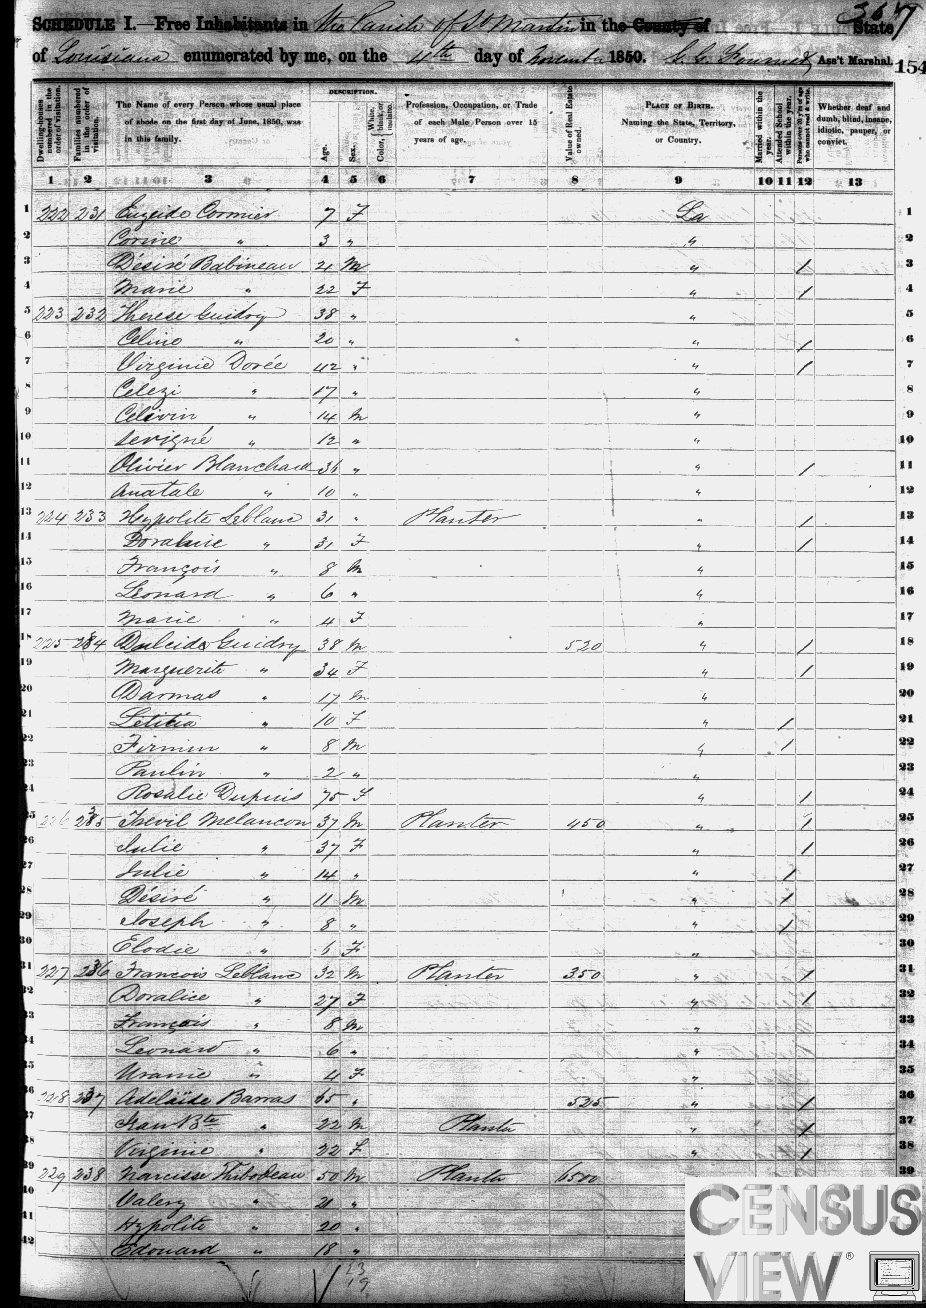 367
SCHEDULE I.—Free Inhabitants in the Parish of St Martin in the County of State
of Louisiana enumerated by me, on the 4th day of November 1850. Ass't Marshal. 154
Dwelling-houses numbered in the order of visitation.
Families numbered in the order of visitation.
The Name of every Person whose usual place of abode on the first day of June, 1850, was in this family.
DESCRIPTION.
Age.
Sex.
Color, White, black, or mulatto.
Profession, Occupation, or Trade of each Male Person over 15 years of age.
Value of Real Estate owned.
PLACE OF BIRTH. Naming the State, Territory, or Country.
Married within the year.
Attended School within the year.
Persons over 20 y'rs of age who cannot read & write.
Whether deaf and dumb, blind, insane, idiotic, pauper, or convict.
1 2 3 4 5 6 7 8 9 10 11 12 13
1 222 231 Cormier 7 F La 1
2 Corine " 3 " " 2
3 Désiré Babineau 21 M " / 3
4 Marie " 22 F " / 4
5 223 232 Therese Guidry 38 " " 5
6 Celino " 20 " " / 6
7 Virginie Dorée 42 " " / 7
8 Celezi " 17 " " 8
9 Célivin " 14 M " 9
10 Sevigné " 12 " " 10
11 Olivier Blanchard 36 " " / 11
12 Anatale " 10 " " 12
13 224 233 Hypolite Leblanc 31 " Planter " / 13
14 Doralise " 31 F " / 14
15 François " 8 M " 15
16 Leonard " 6 " " 16
17 Marie " 4 F " 17
18 225 234 Dulcide Guidry 38 M 520 " / 18
19 Marguerite " 34 F " / 19
20 Darmas " 17 M " 20
21 Letitia " 10 F " / 21
22 Firmin " 8 M " / 22
23 Paulin " 2 " " 23
24 Rosalie Dupuis 75 F " / 24
25 226 235 Melancon 37 M Planter 450 " / 25
26 Julie " 37 F " / 26
27 Julie " 14 " " / 27
28 Désiré " 11 M " / 28
29 Joseph " 8 " " / 29
30 Elodie " 6 F " 30
31 227 236 Francois Leblanc 32 M Planter 350 " / 31
32 Doralice " 27 F " / 32
33 François " 8 M " 33
34 Leonard " 6 " " 34
35 Uranie " 4 F " 35
36 228 237 Adelaïde Barras 65 " 525 " / 36
37 Jean Bte " 22 M Planter " / 37
38 Virginie " 22 F " / 38
39 229 238 Narcisse Thibodeau 50 M Planter 6500 39
40 Valery " 21 "
41 Hypolite " 20 "
42 Edouard " 18 "
23
19
CENSUS
VIEW®